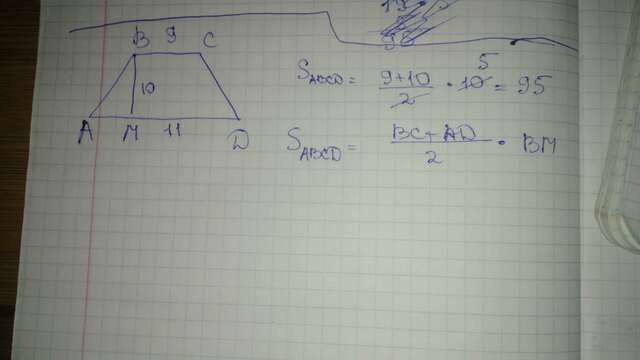 B 9 C
10
A M 11 D
S_ABCD = (9+10)/2 · 10 = 95
5
S_ABCD = (BC+AD)/2 · BM